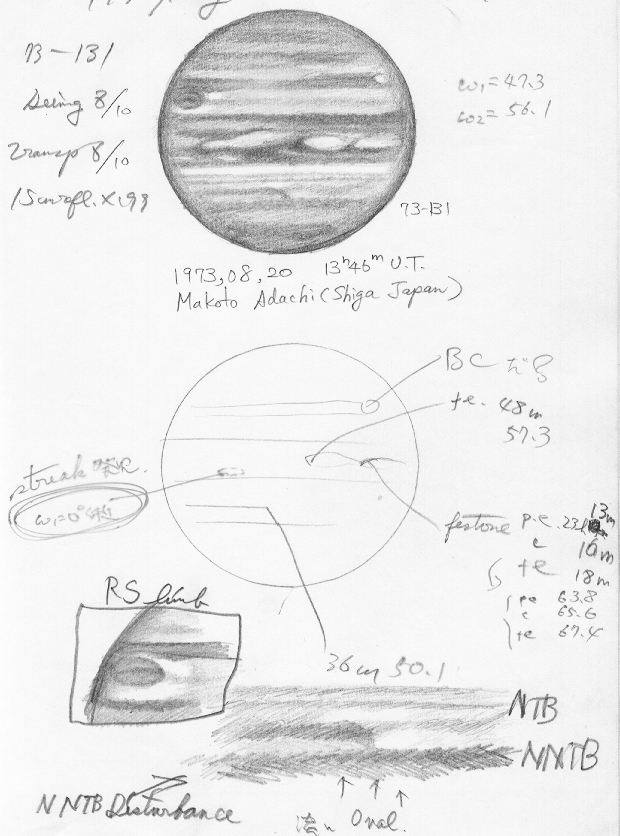 73-131
Seeing 8/10
Transp 8/10
ω1=47.3
ω2=56.1
73-131
1973,08,20 13h46m U.T.
Makoto Adachi (Shiga Japan)
BC
te. 48m
57.3
streak
ω1=0°
festone p.e. 13m
c 16m
te 18m
pe 63.8
c 65.6
te 67.4
RS limb
36m 50.1
NTB
NNTB
NNTB Disturbance
Oval.